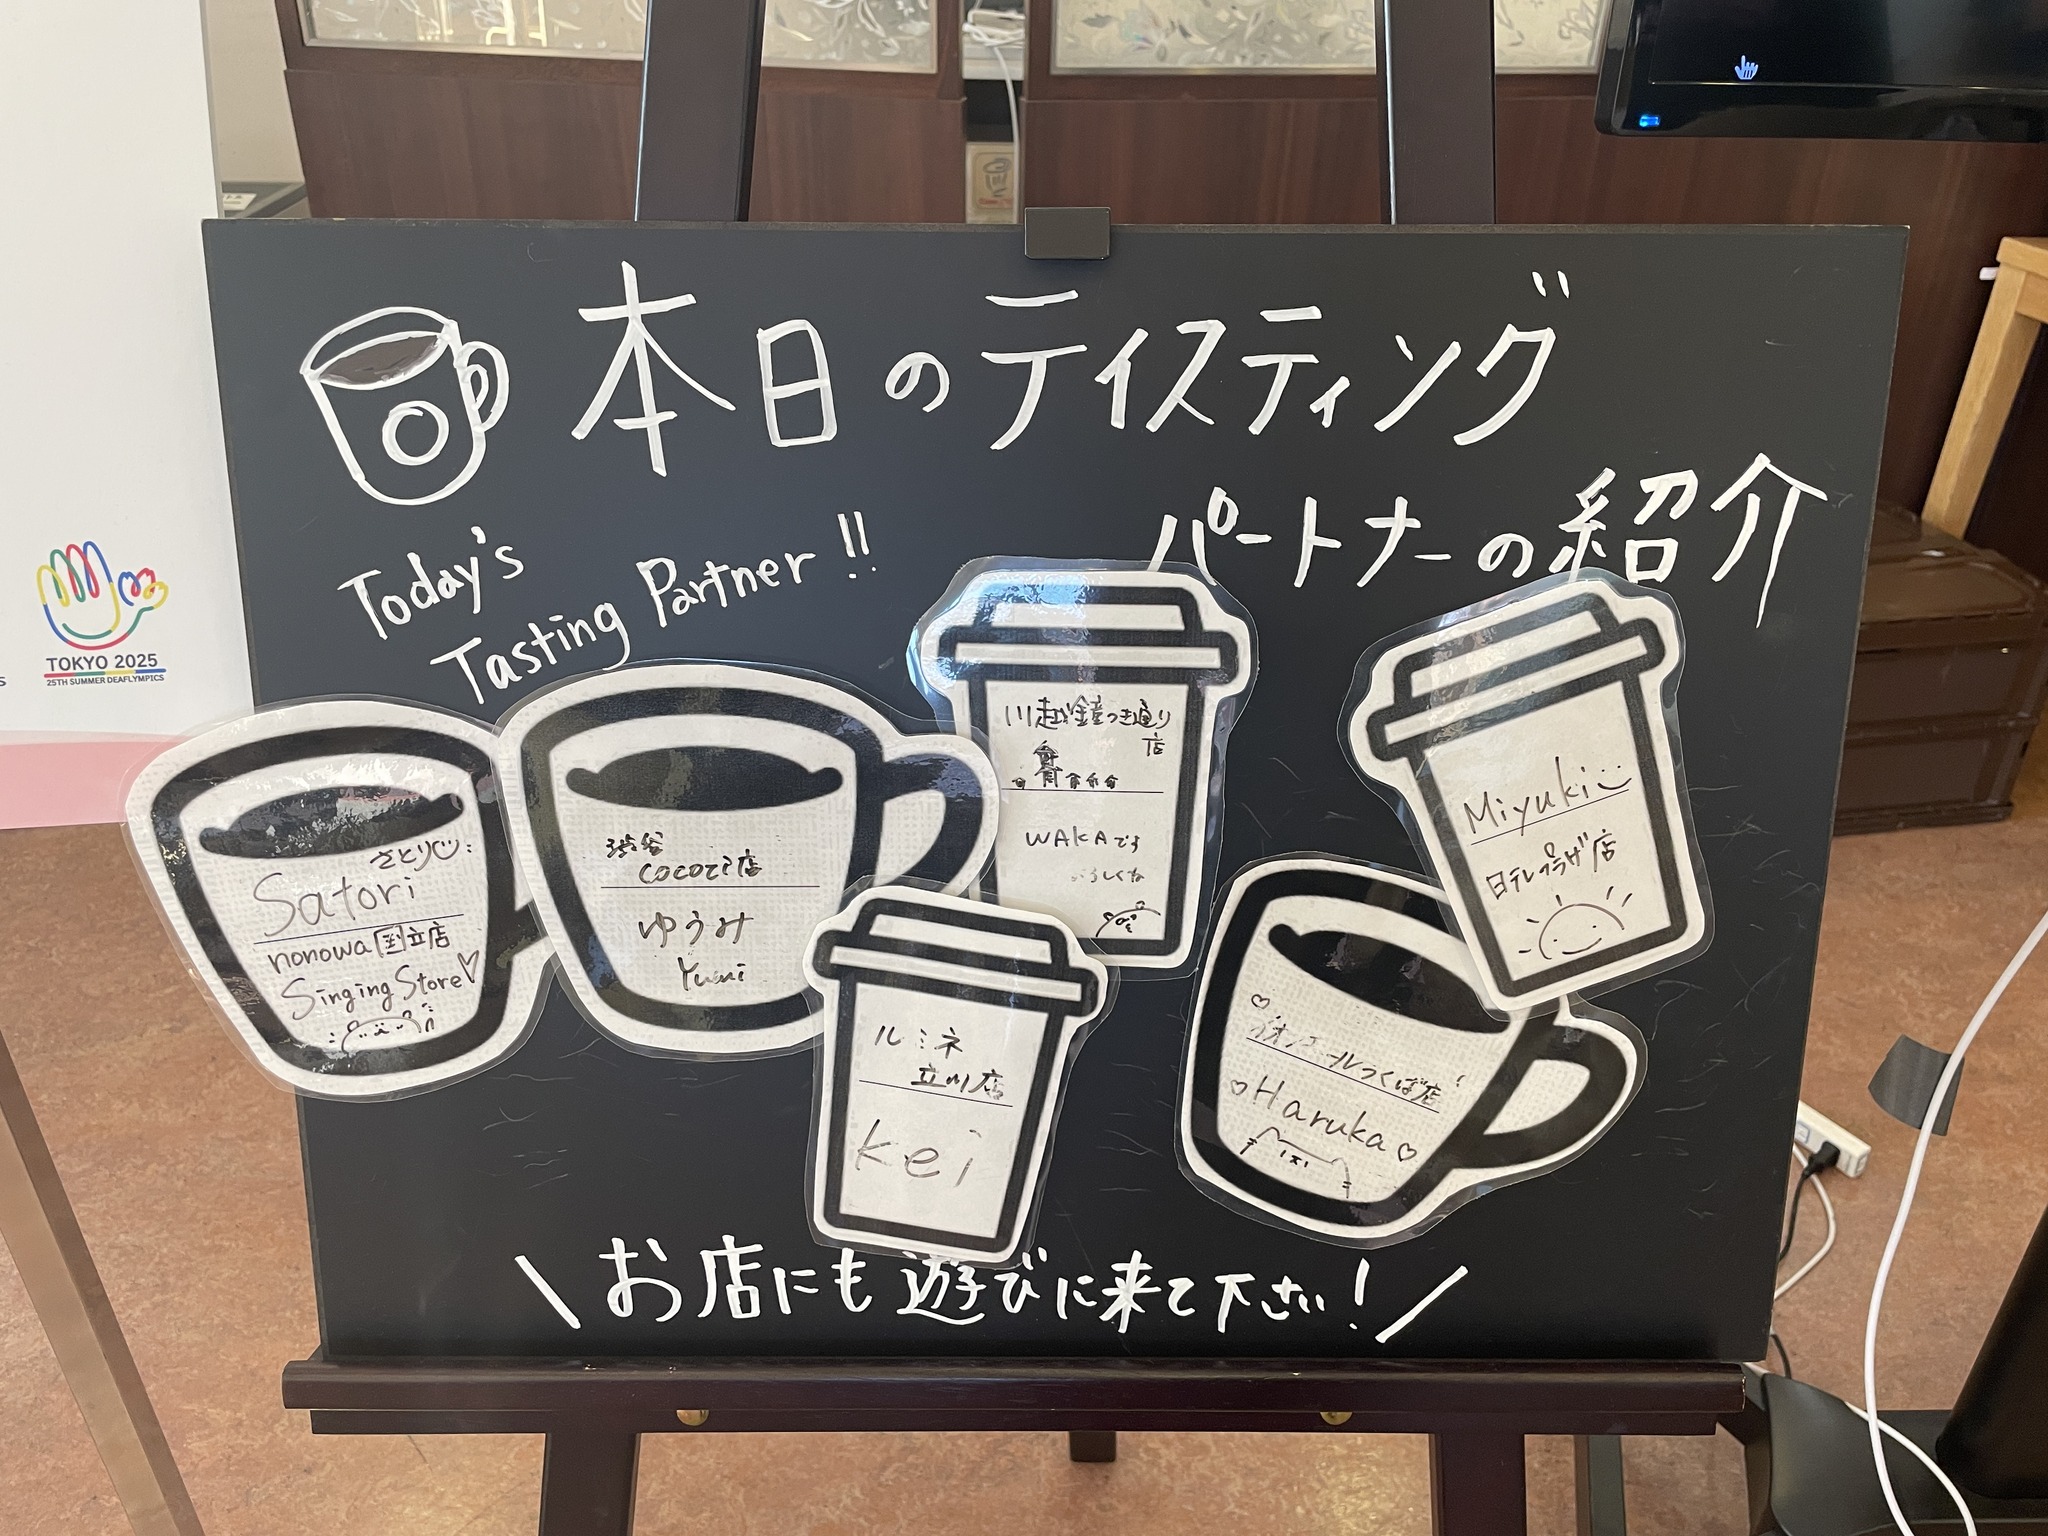 本日のティスティング
パートナーの紹介
Today's
Tasting Partner!!
さとり
Satori
nonowa国立店
Singing Store♡
渋谷
cocoti店
ゆうみ
Yumi
川越鐘つき通り
店
WAKAです
よろしくね
Miyuki
日テレプラザ店
ルミネ
立川店
kei
つくば店
♡Haruka♡
\お店にも遊びに来て下さい!/
TOKYO 2025
25TH SUMMER DEAFLYMPICS